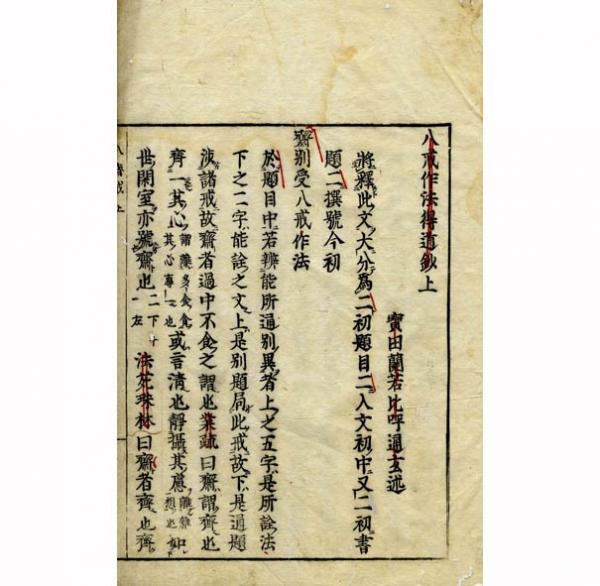 八戒作法得道鈔上
寶田蘭若比呼通玄述
將釋此文大分為二初題目二入文初中又二初書
題二撰號今初
齋別受八戒作法
於題目中若辨能所通別異者上之五字是所詮法
下之二字能詮之文上是別題局此戒故下是通題
涉諸戒故齋者過中不食之謂也業疏曰齋謂齊也
齊一其心或言清也靜攝其慮如
世閑室亦號齋也二下十一左法苑珠林曰齋者齊也齊